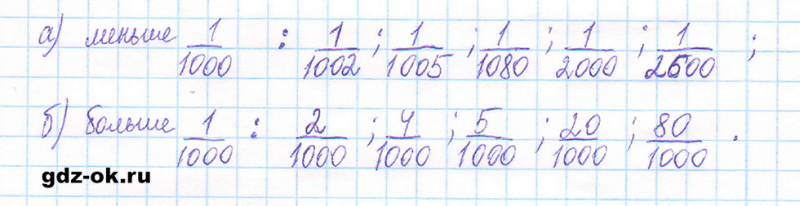 а) меньше 1/1000 : 1/1002 ; 1/1005 ; 1/1080 ; 1/2000 ; 1/2500 ;
б) больше 1/1000 : 2/1000 ; 4/1000 ; 5/1000 ; 20/1000 ; 80/1000 .
gdz-ok.ru